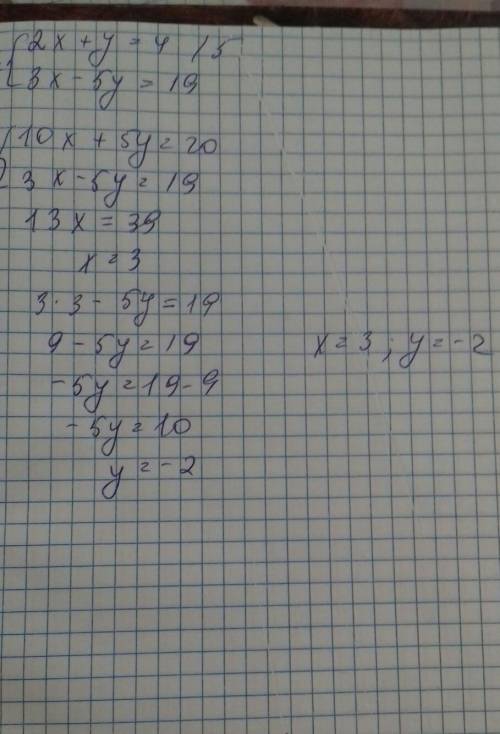 2x + y = 4 / 5
3x - 5y = 19
10x + 5y = 20
3x - 5y = 19
13x = 39
x = 3
3 · 3 - 5y = 19
9 - 5y = 19
-5y = 19 - 9
-5y = 10
y = -2
x = 3 ; y = -2